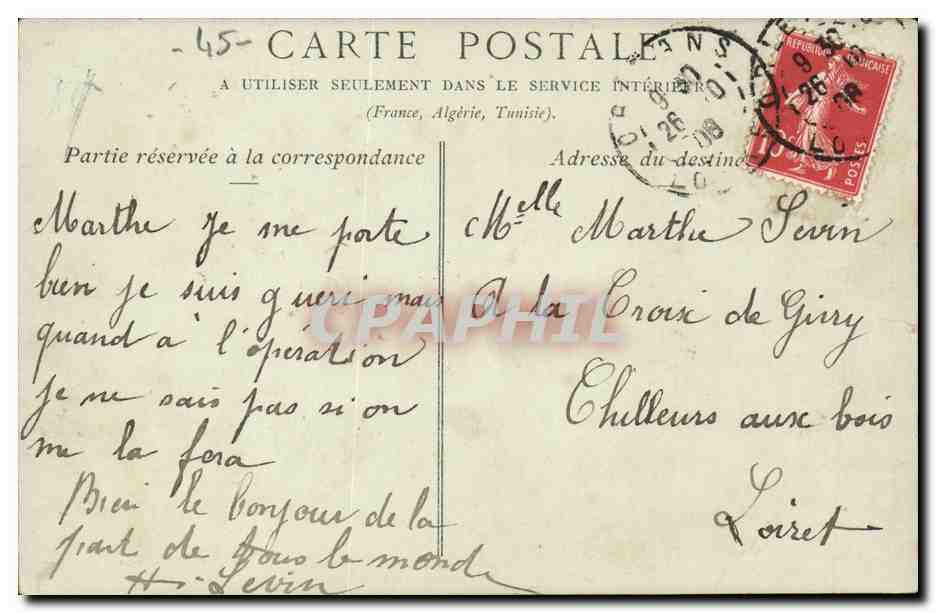 -45-
CARTE POSTALE
A UTILISER SEULEMENT DANS LE SERVICE INTÉRIEUR
(France, Algérie, Tunisie).
Partie réservée à la correspondance
Adresse du destin
Marthe Je me porte
bien je suis guéri mais
quand a l'opération
je ne sais pas si on
me la fera
Bien le bonjour de la
part de tous le monde
H. Sevin
Melle Marthe Sevin
A la Croix de Givry
Chilleurs aux bois
Loiret
REPUBLIQUE FRANÇAISE
10
POSTES
ORLEANS
9 30
26 - 10
08
LO
9 30
26 10
08
LO
CPAPHIL